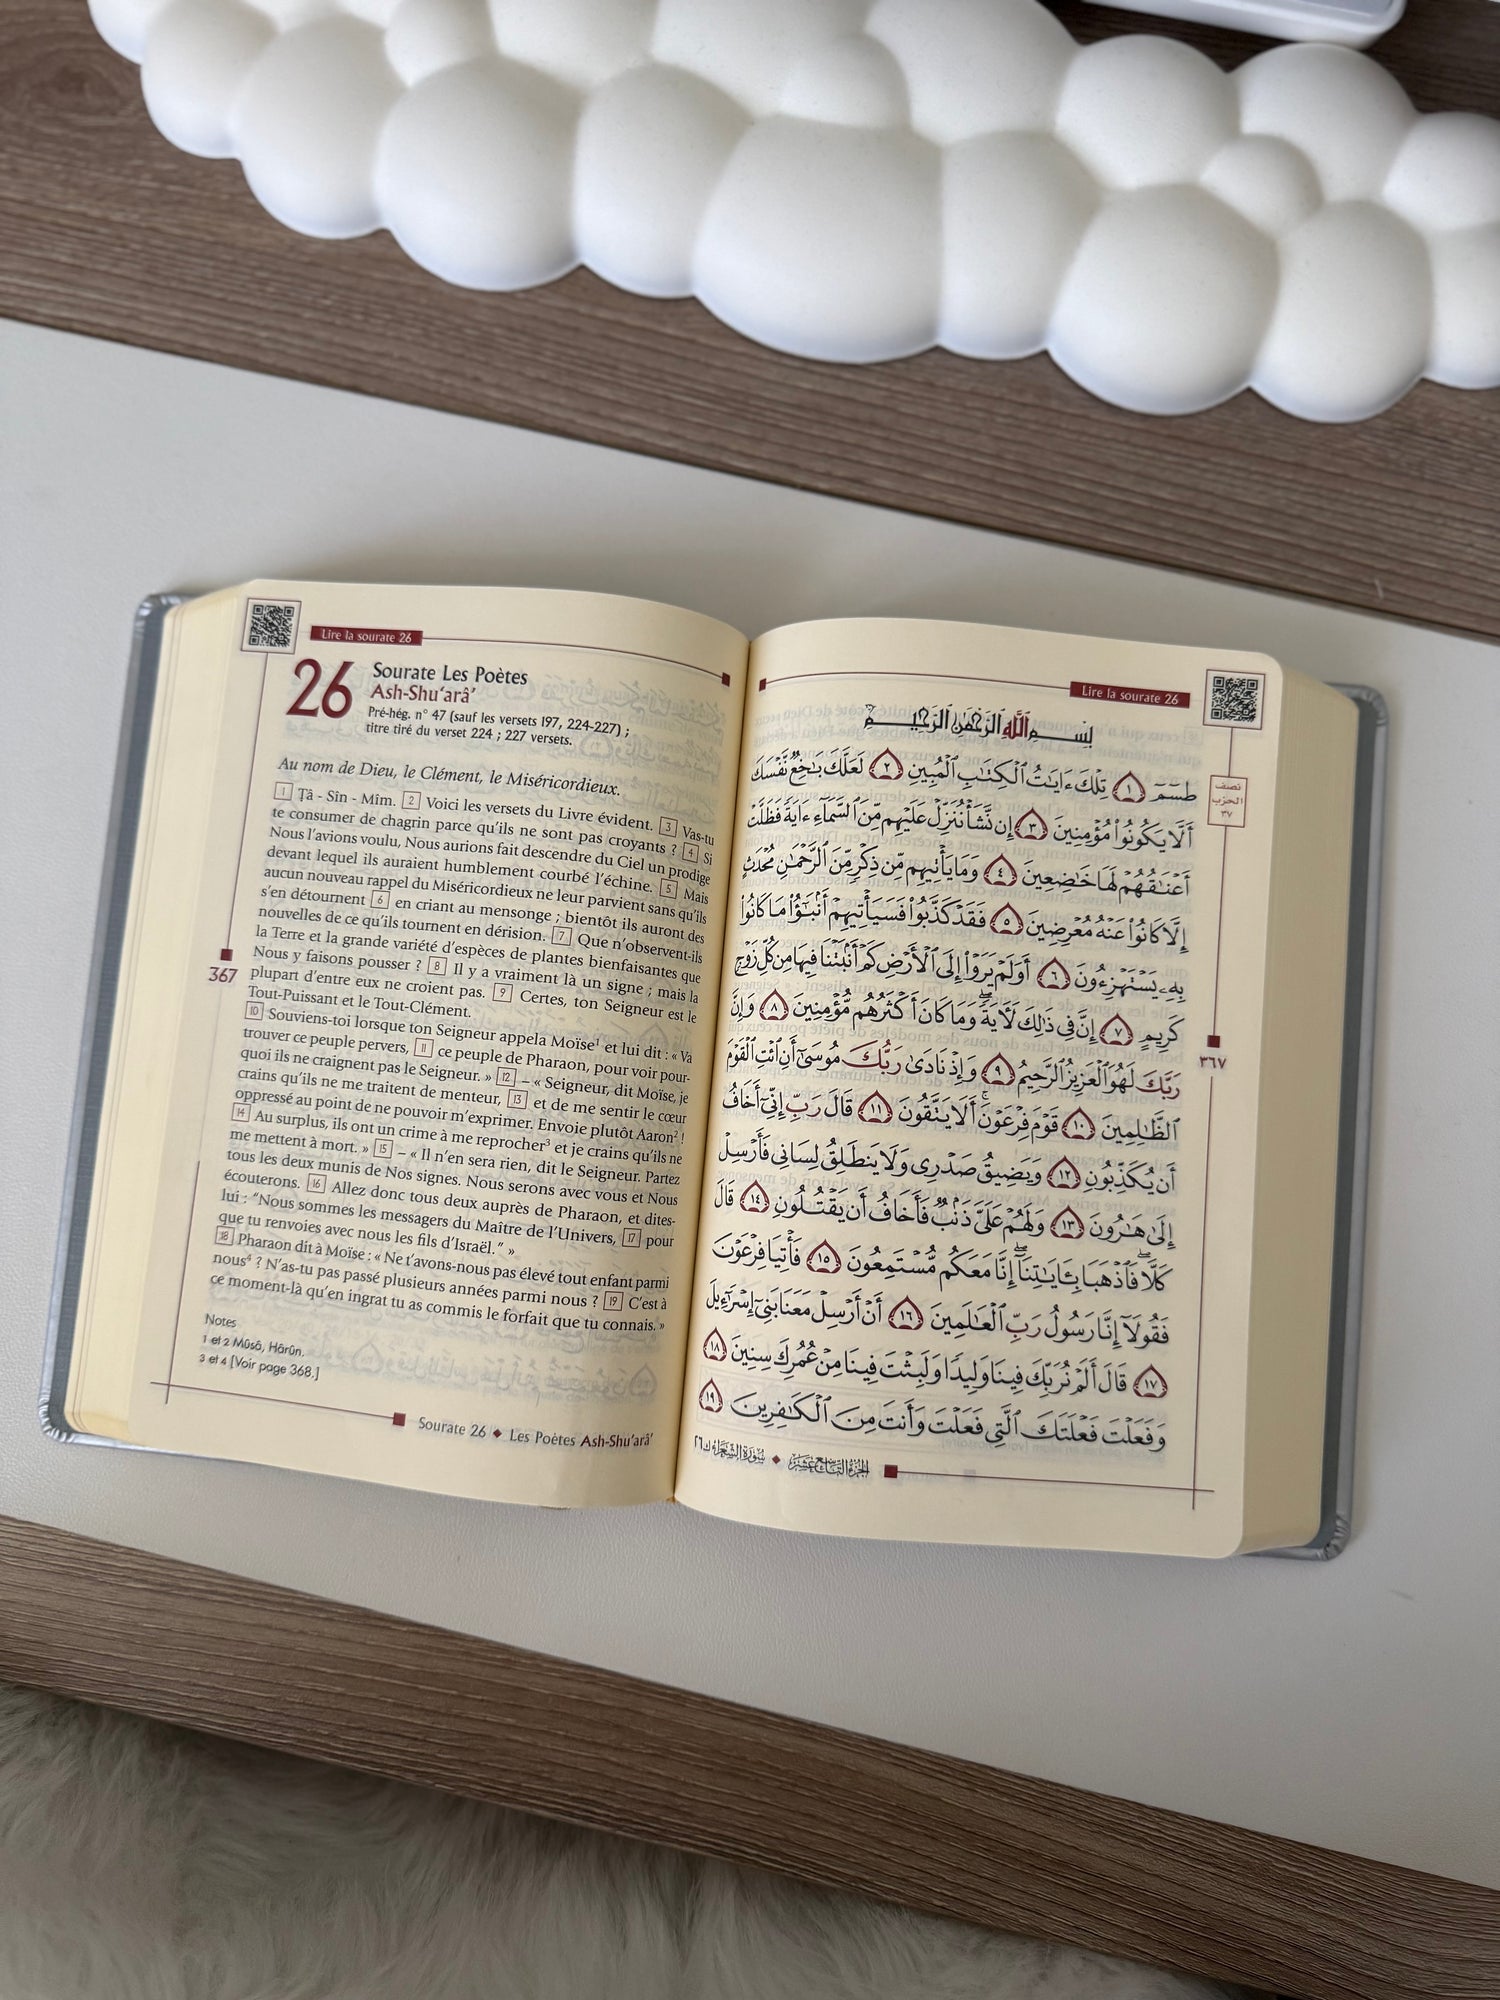 Lire la sourate 26
26
Sourate Les Poètes
Ash-Shu‘arâ’
Pré-hég. n° 47 (sauf les versets 197, 224-227) ;
titre tiré du verset 224 ; 227 versets.
Au nom de Dieu, le Clément, le Miséricordieux.
1 Ṭâ - Sîn - Mîm. 2 Voici les versets du Livre évident. 3 Vas-tu
te consumer de chagrin parce qu’ils ne sont pas croyants ? 4 Si
Nous l’avions voulu, Nous aurions fait descendre du Ciel un prodige
devant lequel ils auraient humblement courbé l’échine. 5 Mais
aucun nouveau rappel du Miséricordieux ne leur parvient sans qu’ils
s’en détournent 6 en criant au mensonge ; bientôt ils auront des
nouvelles de ce qu’ils tournent en dérision. 7 Que n’observent-ils
la Terre et la grande variété d’espèces de plantes bienfaisantes que
Nous y faisons pousser ? 8 Il y a vraiment là un signe ; mais la
plupart d’entre eux ne croient pas. 9 Certes, ton Seigneur est le
Tout-Puissant et le Tout-Clément.
10 Souviens-toi lorsque ton Seigneur appela Moïse¹ et lui dit : « Va
trouver ce peuple pervers, 11 ce peuple de Pharaon, pour voir pour-
quoi ils ne craignent pas le Seigneur. » 12 – « Seigneur, dit Moïse, je
crains qu’ils ne me traitent de menteur, 13 et de me sentir le cœur
oppressé au point de ne pouvoir m’exprimer. Envoie plutôt Aaron² !
14 Au surplus, ils ont un crime à me reprocher³ et je crains qu’ils ne
me mettent à mort. » 15 – « Il n’en sera rien, dit le Seigneur. Partez
tous les deux munis de Nos signes. Nous serons avec vous et Nous
écouterons. 16 Allez donc tous deux auprès de Pharaon, et dites-
lui : “Nous sommes les messagers du Maître de l’Univers, 17 pour
que tu renvoies avec nous les fils d’Israël.” »
18 Pharaon dit à Moïse : « Ne t’avons-nous pas élevé tout enfant parmi
nous⁴ ? N’as-tu pas passé plusieurs années parmi nous ? 19 C’est à
ce moment-là qu’en ingrat tu as commis le forfait que tu connais. »
367
Notes
1 et 2 Mûsâ, Hârûn.
3 et 4 [Voir page 368.]
Sourate 26 ◆ Les Poètes Ash-Shu‘arâ’
Lire la sourate 26
بِسْمِ ٱللَّهِ ٱلرَّحْمَٰنِ ٱلرَّحِيمِ
طسٓمٓ ١ تِلْكَ ءَايَٰتُ ٱلْكِتَٰبِ ٱلْمُبِينِ ٢ لَعَلَّكَ بَٰخِعٌ نَّفْسَكَ
أَلَّا يَكُونُوا۟ مُؤْمِنِينَ ٣ إِن نَّشَأْ نُنَزِّلْ عَلَيْهِم مِّنَ ٱلسَّمَآءِ ءَايَةً فَظَلَّتْ
أَعْنَٰقُهُمْ لَهَا خَٰضِعِينَ ٤ وَمَا يَأْتِيهِم مِّن ذِكْرٍ مِّنَ ٱلرَّحْمَٰنِ مُحْدَثٍ
إِلَّا كَانُوا۟ عَنْهُ مُعْرِضِينَ ٥ فَقَدْ كَذَّبُوا۟ فَسَيَأْتِيهِمْ أَنۢبَٰٓؤُا۟ مَا كَانُوا۟
بِهِۦ يَسْتَهْزِءُونَ ٦ أَوَلَمْ يَرَوْا۟ إِلَى ٱلْأَرْضِ كَمْ أَنۢبَتْنَا فِيهَا مِن كُلِّ زَوْجٍ
كَرِيمٍ ٧ إِنَّ فِى ذَٰلِكَ لَءَايَةً ۖ وَمَا كَانَ أَكْثَرُهُم مُّؤْمِنِينَ ٨ وَإِنَّ
رَبَّكَ لَهُوَ ٱلْعَزِيزُ ٱلرَّحِيمُ ٩ وَإِذْ نَادَىٰ رَبُّكَ مُوسَىٰٓ أَنِ ٱئْتِ ٱلْقَوْمَ
ٱلظَّٰلِمِينَ ١٠ قَوْمَ فِرْعَوْنَ ۚ أَلَا يَتَّقُونَ ١١ قَالَ رَبِّ إِنِّىٓ أَخَافُ
أَن يُكَذِّبُونِ ١٢ وَيَضِيقُ صَدْرِى وَلَا يَنطَلِقُ لِسَانِى فَأَرْسِلْ
إِلَىٰ هَٰرُونَ ١٣ وَلَهُمْ عَلَىَّ ذَنۢبٌ فَأَخَافُ أَن يَقْتُلُونِ ١٤ قَالَ
كَلَّا ۖ فَٱذْهَبَا بِـَٔايَٰتِنَآ ۖ إِنَّا مَعَكُم مُّسْتَمِعُونَ ١٥ فَأْتِيَا فِرْعَوْنَ
فَقُولَآ إِنَّا رَسُولُ رَبِّ ٱلْعَٰلَمِينَ ١٦ أَنْ أَرْسِلْ مَعَنَا بَنِىٓ إِسْرَٰٓءِيلَ
١٧ قَالَ أَلَمْ نُرَبِّكَ فِينَا وَلِيدًا وَلَبِثْتَ فِينَا مِنْ عُمُرِكَ سِنِينَ ١٨
وَفَعَلْتَ فَعْلَتَكَ ٱلَّتِى فَعَلْتَ وَأَنتَ مِنَ ٱلْكَٰفِرِينَ ١٩
نصف
الحزب
٣٧
٣٦٧
الجزء التاسع عشر ◆ سورة الشعراء ك ٢٦